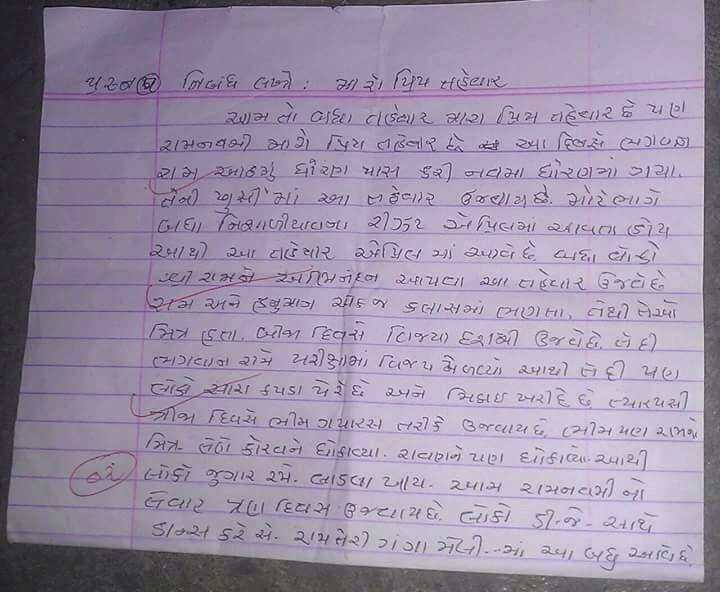 પ્રશ્ન ૬ નિબંધ લખો : મારો પ્રિય તહેવાર
આમ તો બધા તહેવાર મારા પ્રિય તહેવાર છે પણ
રામનવમી મારો પ્રિય તહેવાર છે આ દિવસે ભગવાન
રામ આઠમું ધોરણ પાસ કરી નવમા ધોરણમાં ગયા.
તેની ખુસીમાં આ તહેવાર ઉજવાય છે. મોટેભાગે
બધા નિશાળીયાવના રીઝટ એપ્રિલમાં આવતા હોય
આથી આ તહેવાર એપ્રિલ માં આવે છે બધા લોકો
શ્રી રામને અભિનંદન આપવા આ તહેવાર ઉજવે છે
રામ અને હનુમાન એકજ કલાસમાં ભણતા. તેથી તેઓ
મિત્ર હતા. બીજા દિવસે વિજયા દશમી ઉજવે છે. તે દી
ભગવાન રામે પરીક્ષામાં વિજય મેળવ્યો આથી તે દી પણ
લોકો સારા કપડા પેરે છે અને મિઠાઇ ખરીદે છે ત્યારપસી
ત્રીજા દિવસે ભીમ ગયારસ તરીકે ઉજવાય છે, ભીમ પણ રામનો
મિત્ર. તેણે કોરવને ધોકાવ્યા. રાવણને પણ ધોકાવ્યો. આથી
લોકો જુગાર રમે. લાડવા ખાય. આમ રામનવમી નો
તેવાર ત્રણ દિવસ ઉજવાય છે. લોકો ડી.જે. સાથે
ડાન્સ કરે સે. રામ તેરી ગંગા મેલી...માં આ બધુ આવે છે.
૦૨